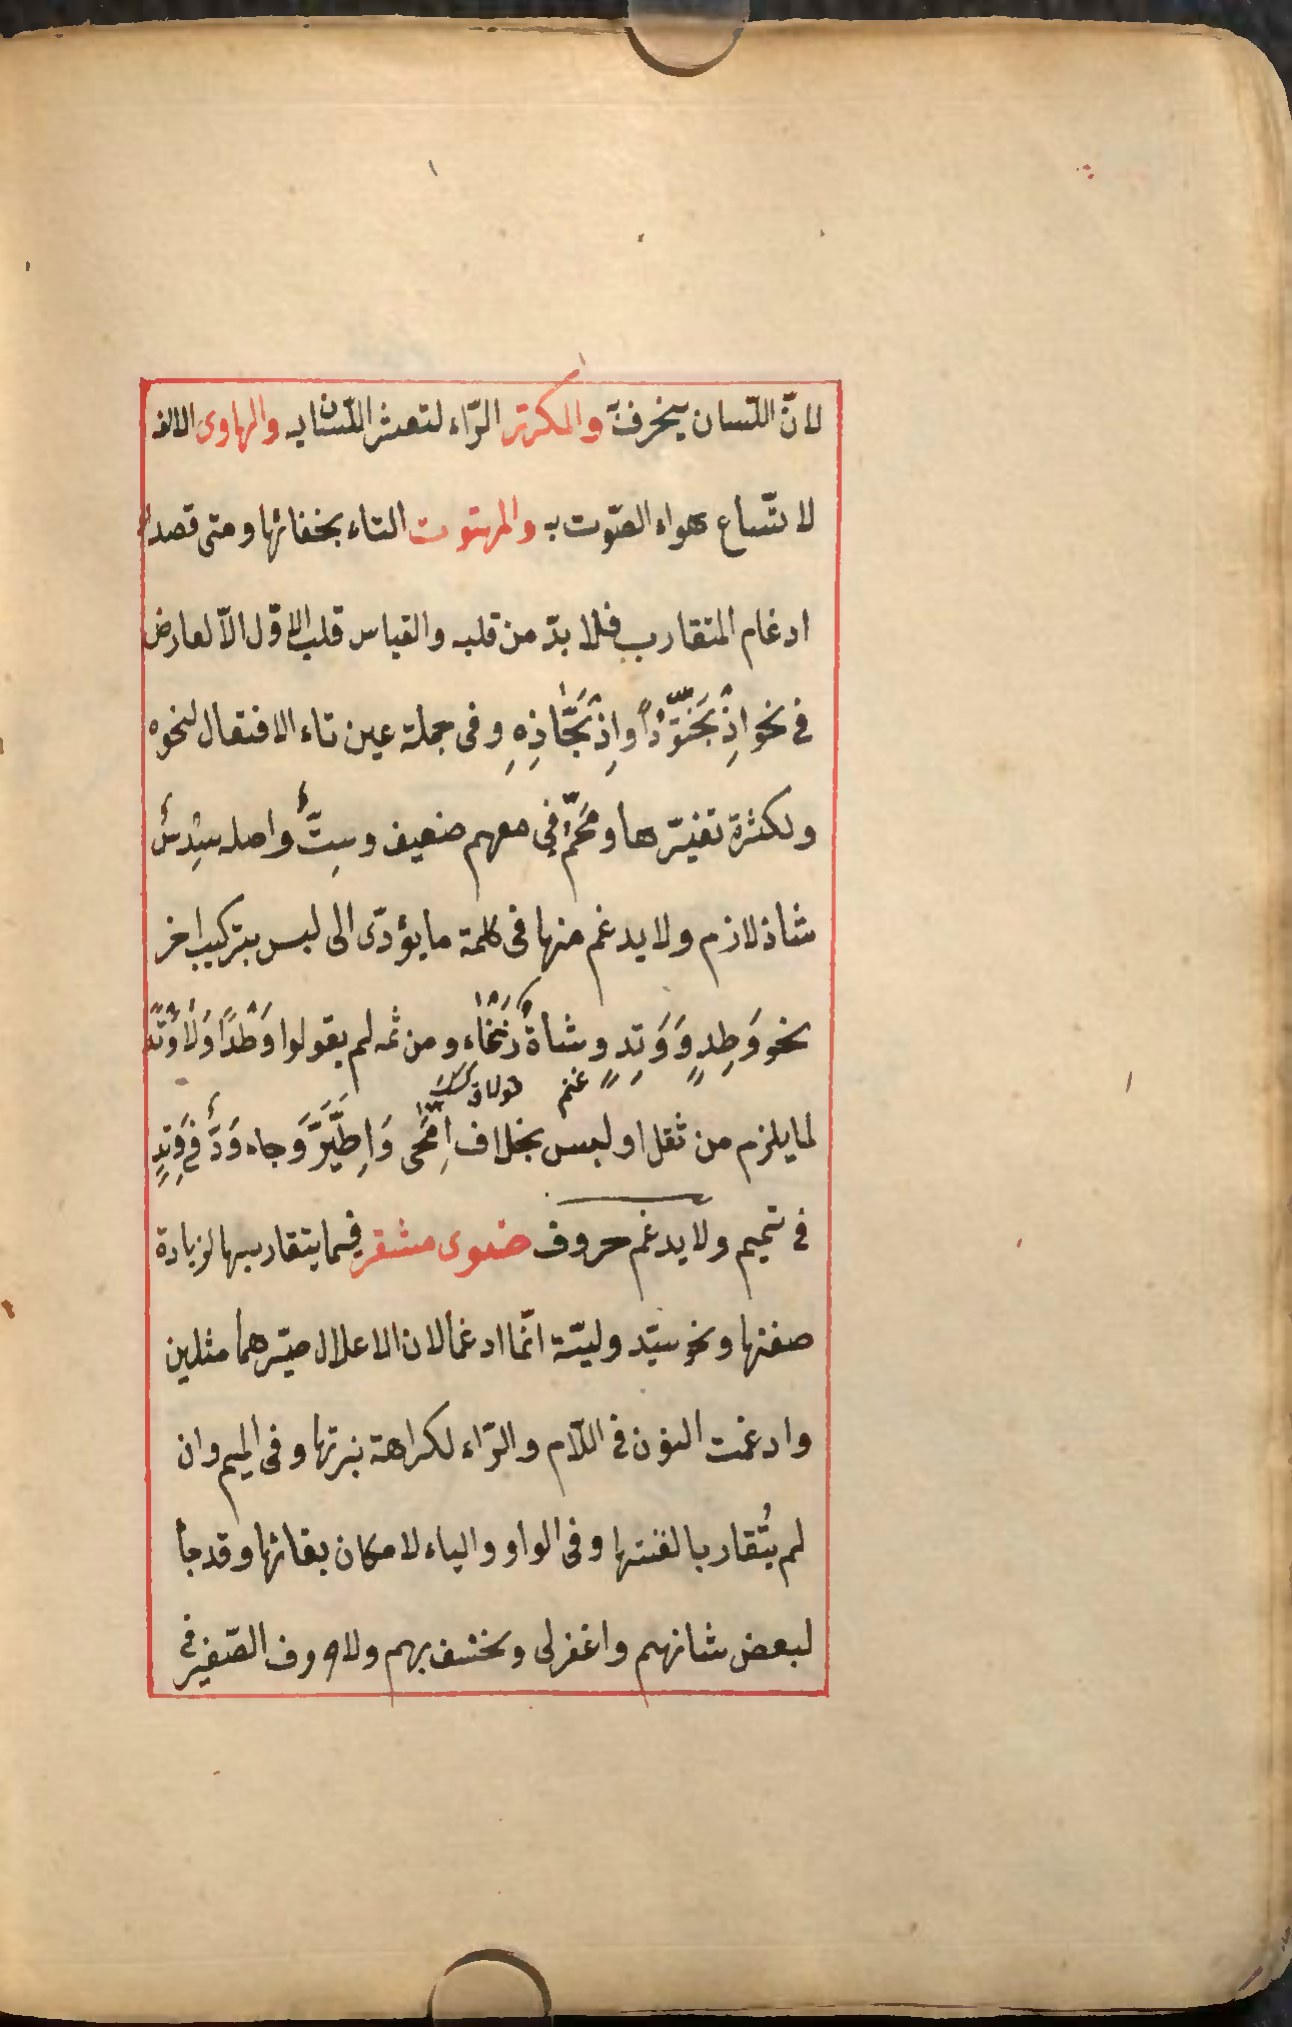 لانّ اللّسان ينحرف به والمكرّر الرّاء لتعثر اللّسان به والهاوى الالف
لاتّساع هواء الصّوت به والمهتوت التاء بخفائها ومتى قصد
ادغام المتقارب فلا بدّ من قلبه والقياس قلب الاوّل الاّ لعارض
فى نحو اِذْبَحَّتُّودًا وَاِذْبَحَّاذِهِ وفى جملة عين تاء الافتعال لنحوه
ولكثرة تغيّرها ومَحُّمْ فى معهم ضعيف وسِتٌّ واصله سِدْسٌ
شاذ لازم ولا يدغم منها فى كلمة ما يؤدّى الى لبس بتركيب اخر
نحو وَطِدٍ وَوَتِدٍ وشاةٌ زَنْمَاءُ ومن ثمه لم يقولوا وَطْدًا وَلَا وَتْدًا
غنم
لما يلزم من ثقل او لبس بخلاف اِمَّحَى وَاِطَّيَّرَ وجاء وَدٌّ فى وَتِدٍ
فى تميم ولا يدغم حروف ضوى مشفر فيما يتقاربها لزيادة
صفتها ونحو سيّد وليّة انّما ادغما لان الاعلال صيّرهما مثلين
وادغمت النون فى اللّام والرّاء لكراهة نبرتها وفى الميم وان
لم يُتقاربا لغنتها وفى الواو والياء لامكان بقائها وقد جا
لبعض شانهم واغفرلى ونخسف بهم ولا حروف الصّفير فى